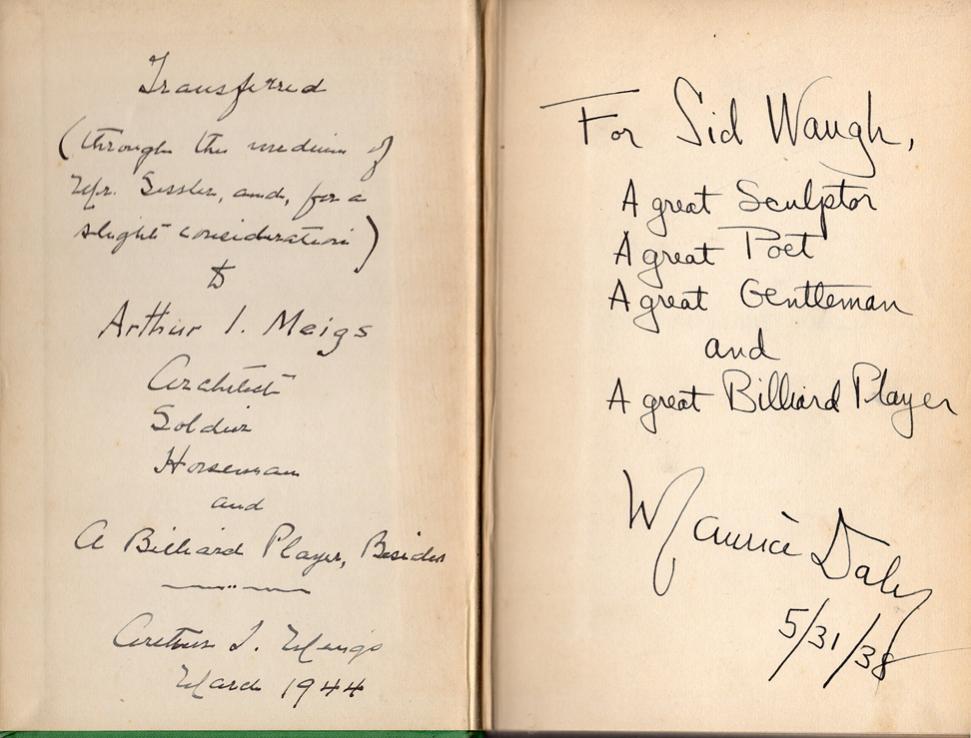 Transferred
(through the medium of
Mr. Sessler, and, for a
slight consideration)
to
Arthur I. Meigs
Architect
Soldier
Horseman
and
A Billiard Player, Besides
Arthur I. Meigs
March 1944
For Sid Waugh,
A great Sculptor
A great Poet
A great Gentleman
and
A great Billiard Player
Maurice Daly
5/31/38